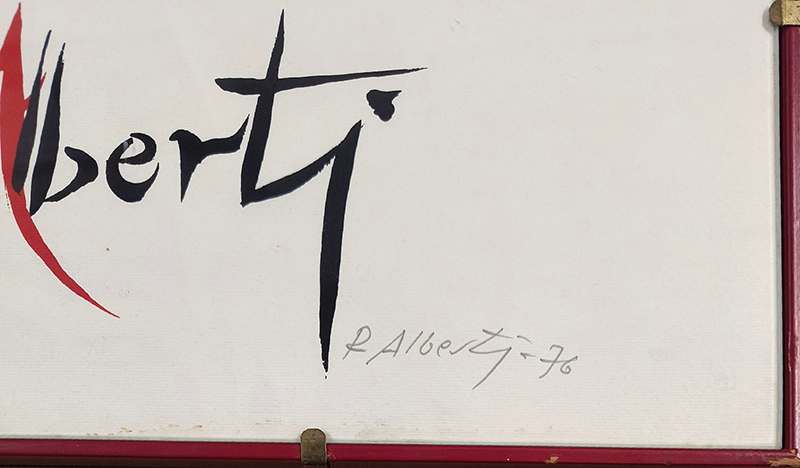 Alberti
R Alberti - 76